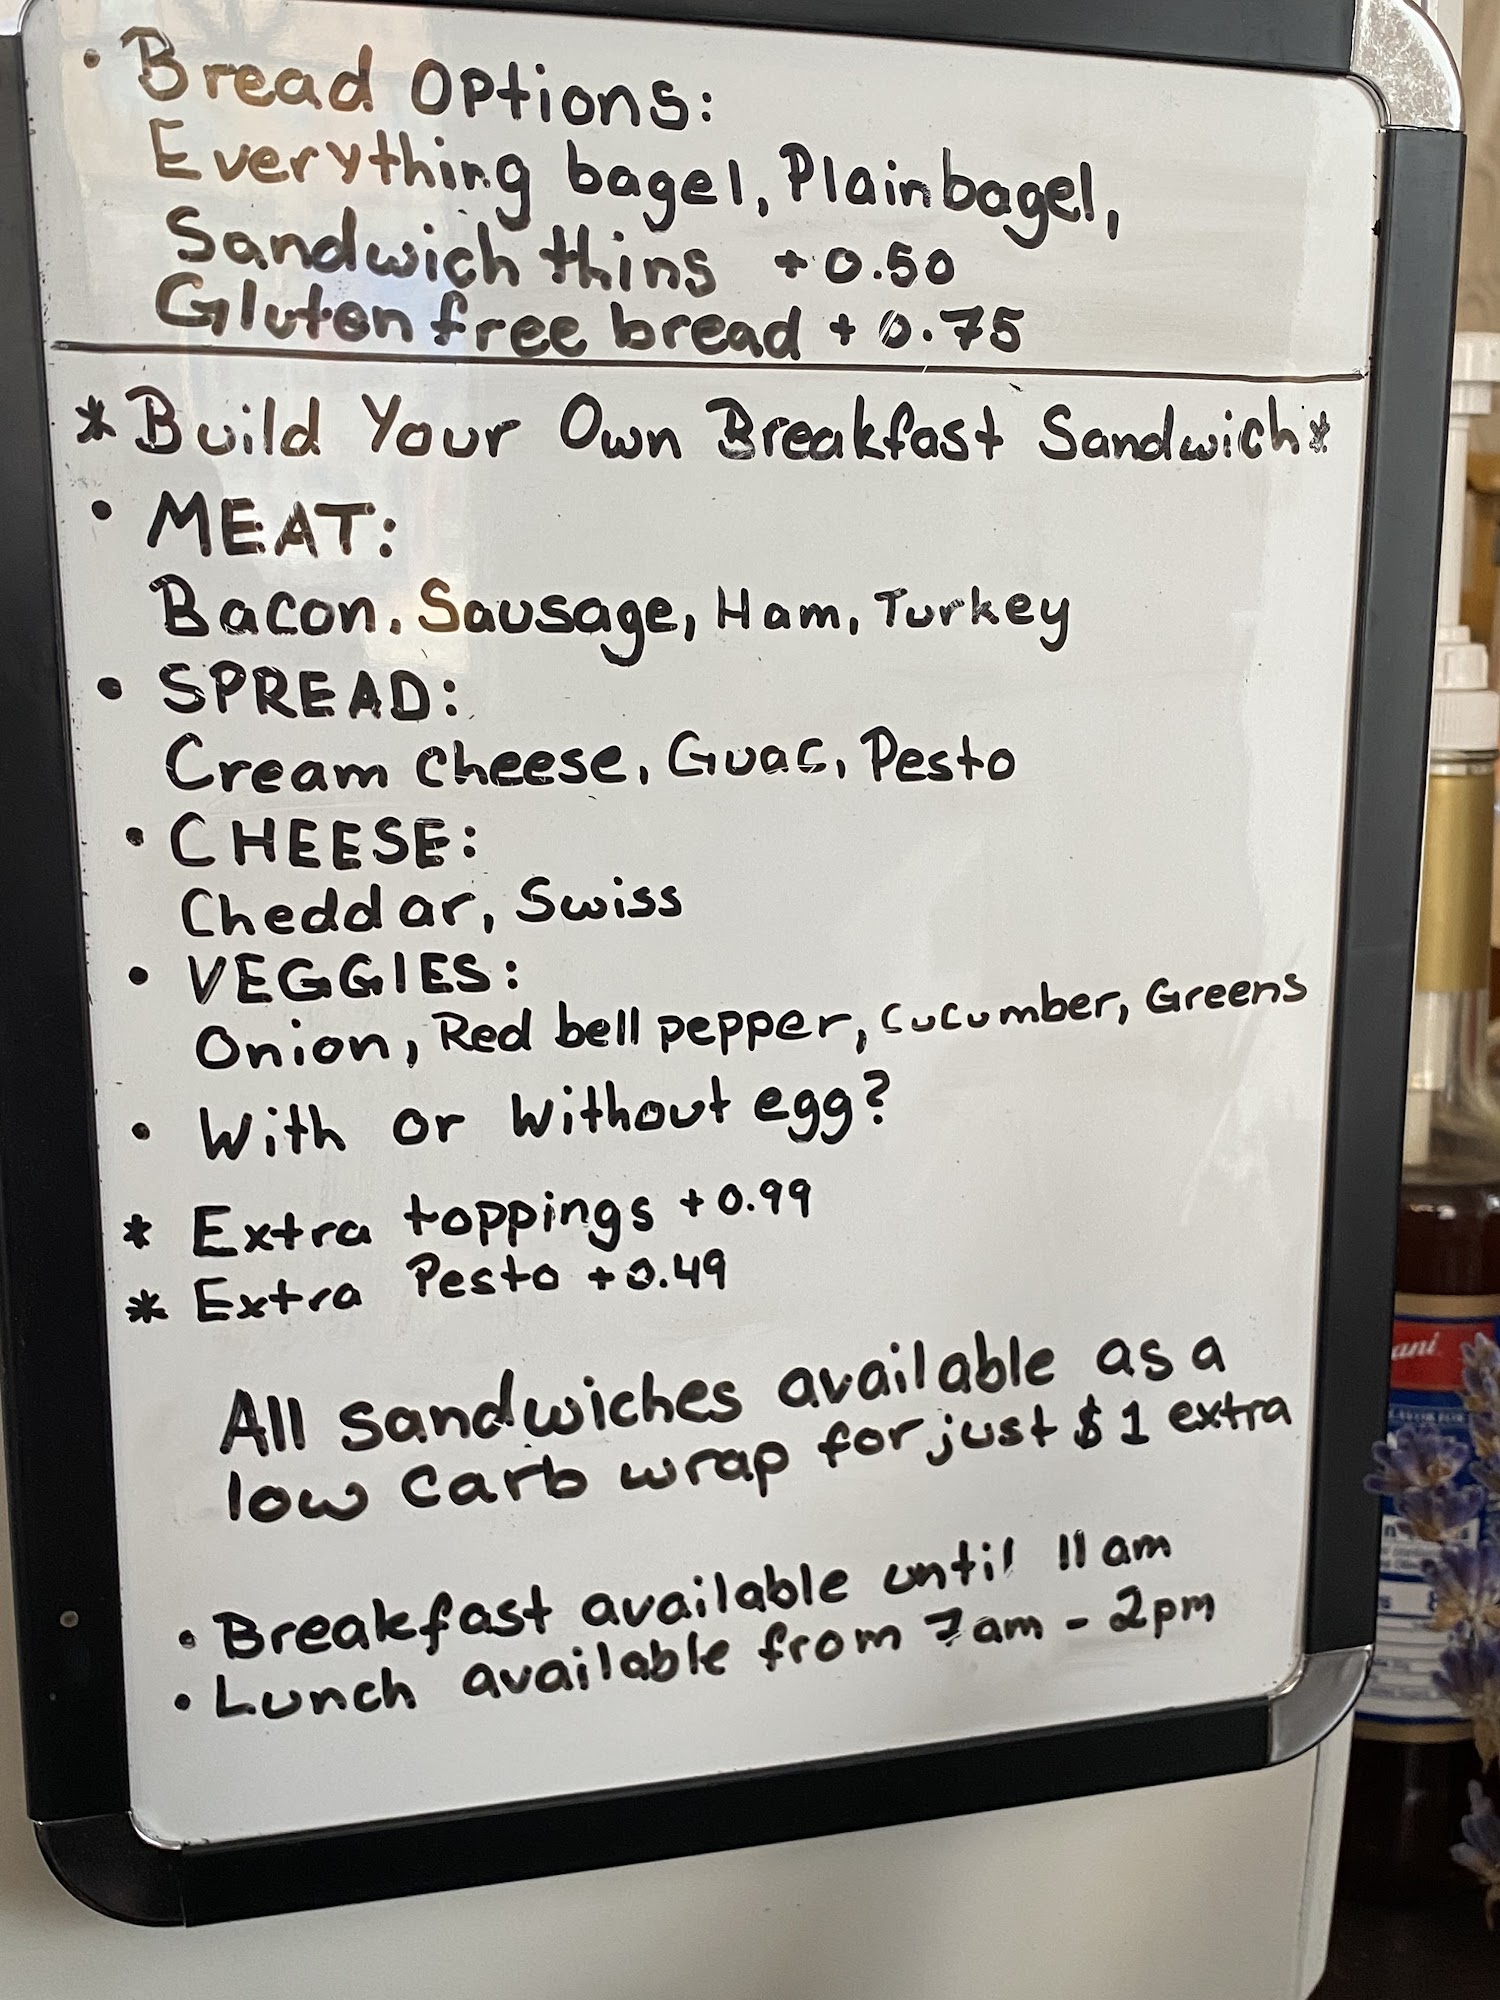 • Bread Options:
Everything bagel, Plain bagel,
Sandwich thins +0.50
Gluten free bread +0.75
*Build Your Own Breakfast Sandwich*
• MEAT:
Bacon, Sausage, Ham, Turkey
• SPREAD:
Cream cheese, Guac, Pesto
• CHEESE:
Cheddar, Swiss
• VEGGIES:
Onion, Red bell pepper, cucumber, Greens
• With or Without egg?
* Extra toppings +0.99
* Extra Pesto +0.49
All sandwiches available as a
low carb wrap for just $1 extra
• Breakfast available until 11am
• Lunch available from 7am - 2pm
ani